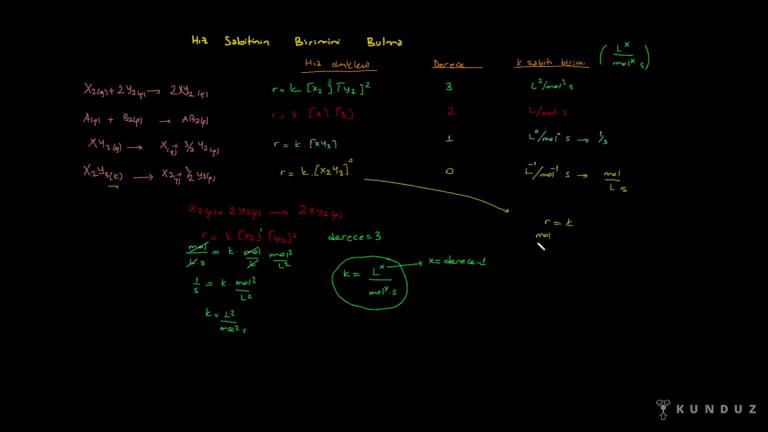 Hız Sabitinin Birimini Bulma
Hız denklemi Derece k sabiti birimi (L^x/mol^x.s)
X2(g)+2Y2(g) → 2XY2(g) r = k.[X2]^1.[Y2]^2 3 L^2/mol^2.s
A(g) + B2(g) → AB2(g) r = k 2 L/mol.s
XY3(g) → X(g)+ 3/2 Y2(g) r = k.[XY3] 1 L^0/mol^0.s → 1/s
X2Y3(k) → X2(g)+ 3/2 Y2(g) r = k.[X2Y3]^0 0 L^-1/mol^-1.s → mol/L.s
X2(g)+2Y2(g) → 2XY2(g)
r = k.[X2]^1[Y2]^2 derece=3
mol/L.s = k mol/L mol^2/L^2
1/s = k. mol^2/L^2
k = L^2/mol^2.s
k = L^x/mol^x.s → x=derece-1
r = k
mol
KUNDUZ